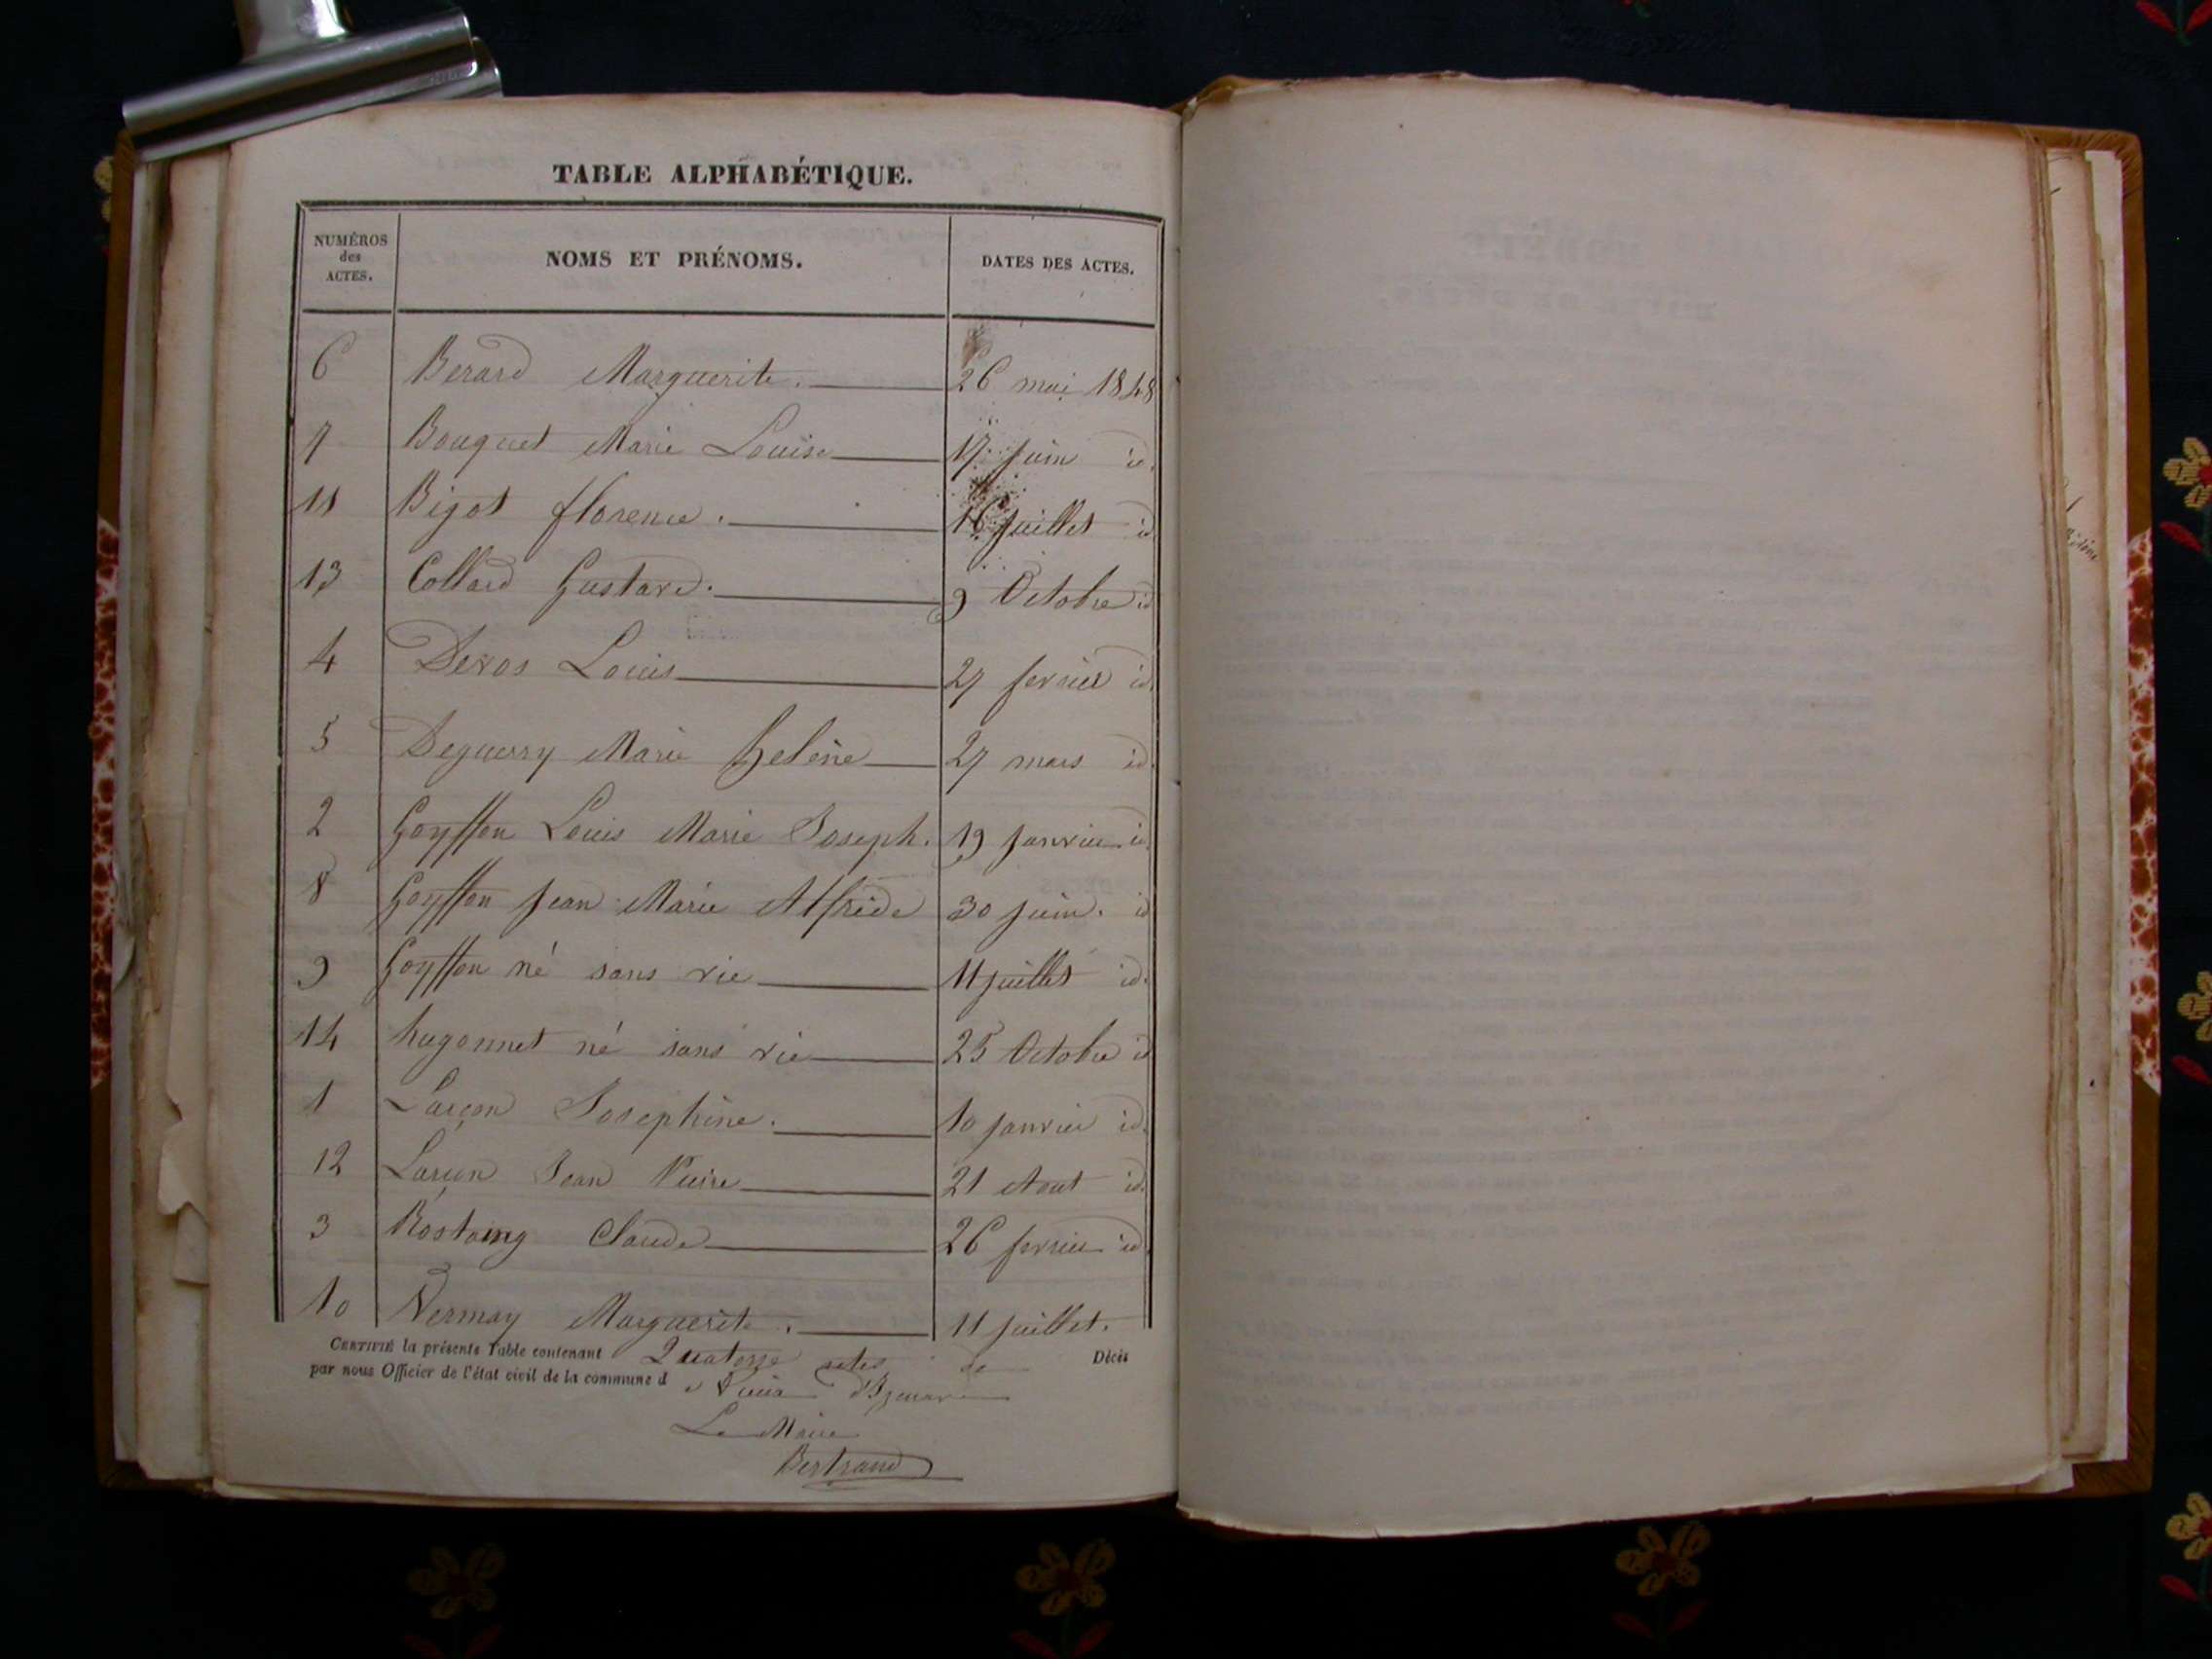 TABLE ALPHABÉTIQUE.
NUMÉROS des ACTES. NOMS ET PRÉNOMS. DATES DES ACTES.
6 Berard Marguerite. 26 mai 1848
7 Bouquet Marie Louise 17 juin id.
11 Bigot florence. 16 juillet id
13 Collard Gustave. 9 Octobre id
4 Devos Louis 27 fevrier id.
5 Deguerry Marie helène 27 mars id.
2 Goyffon Louis Marie Joseph. 19 janvier id.
8 Goyffon jean Marie Alfride 30 juin. id
9 Goyffon né sans vie 11 juillet id.
14 hugonnet né sans vie 25 Octobre id
1 Larçon Josephine. 10 janvier id.
12 Larçon Jean Pierre 21 Aout id.
3 Rostaing Claude 26 fevrier id
10 Vermay Marguerite. 11 juillet.
CERTIFIÉ la présente Table contenant Quatorze actes de Décès
par nous Officier de l'état civil de la commune d
Le Maire
Bertrand